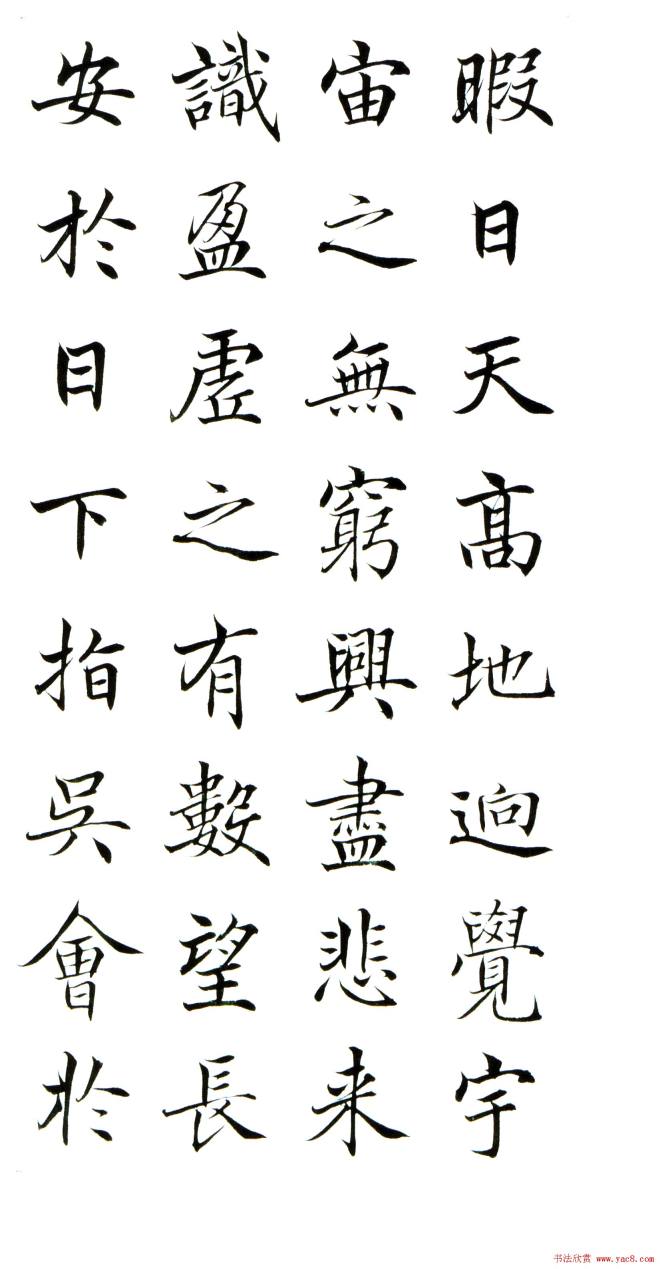 暇日天高地逈覺宇
宙之無窮興盡悲来
識盈虛之有數望長
安於日下指吳會於
书法欣赏 www.yac8.com